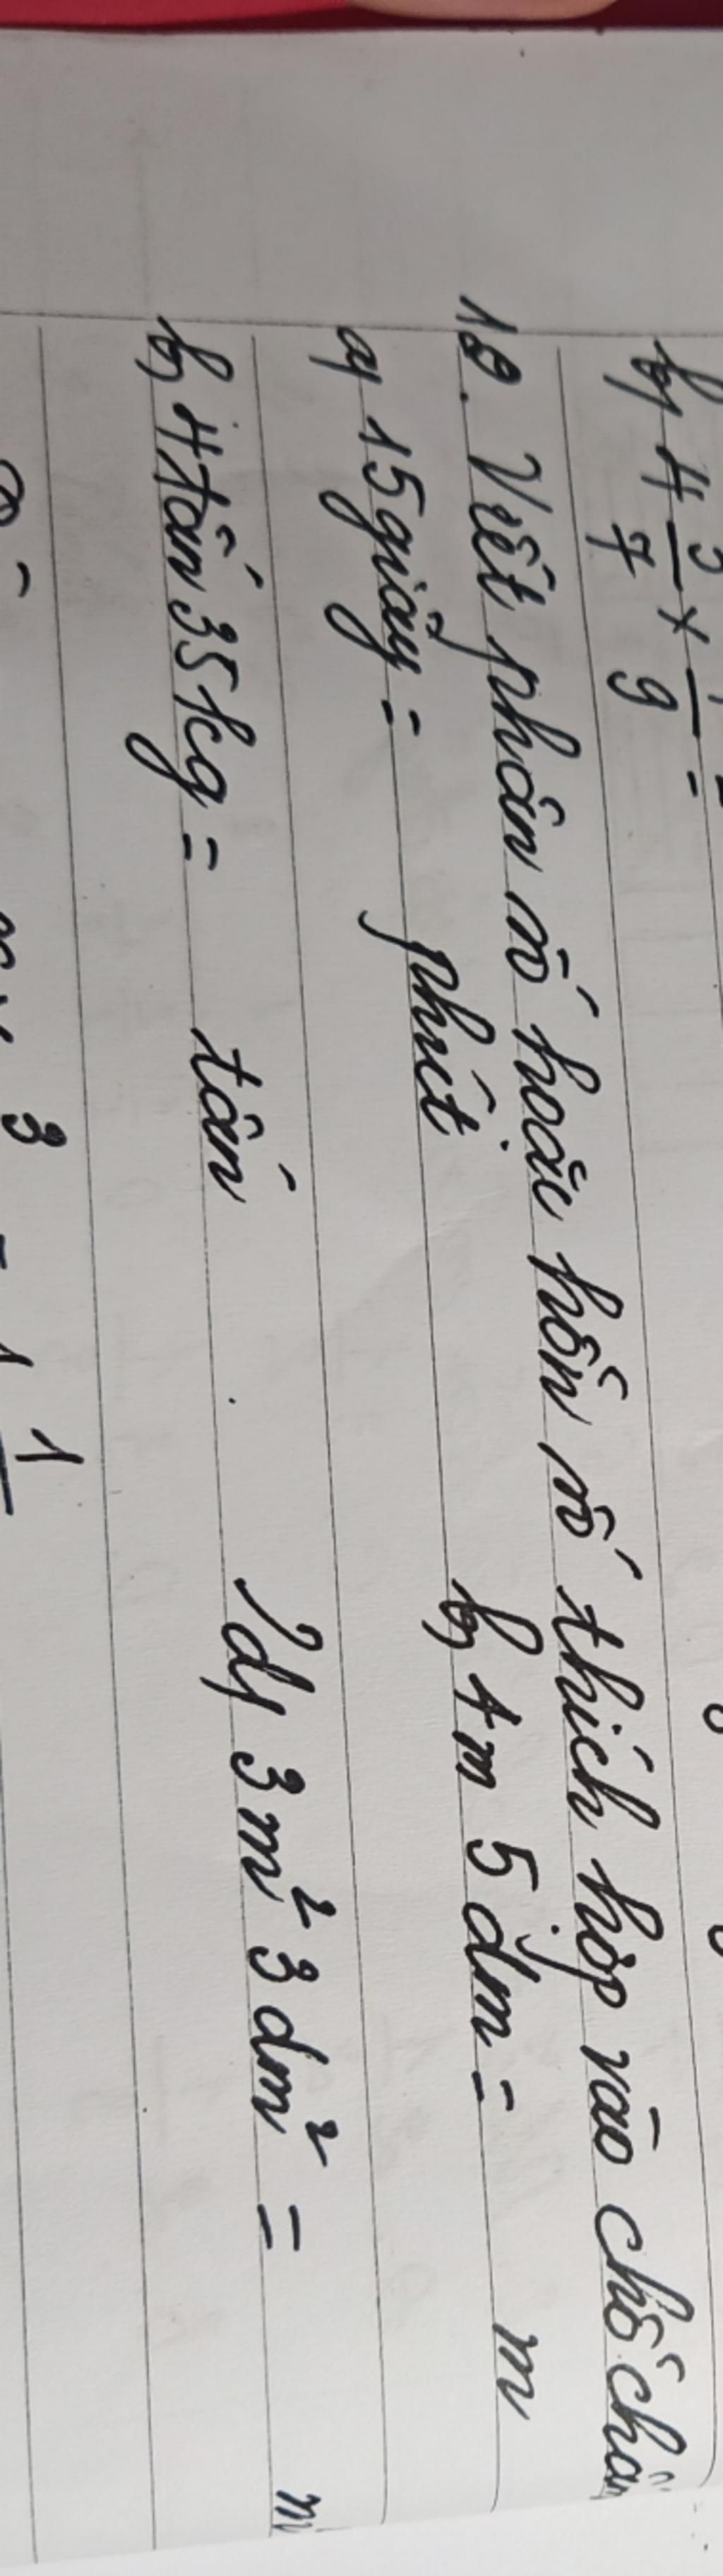 b, 4 5/7 × 1/9 =
18. Viết phân số hoặc hỗn số thích hợp vào chỗ chấm
a, 15 giây = phút b, 4m 5dm = m
b, 4 tấn 35kg = tấn d, 3m² 3dm² = m
3 1